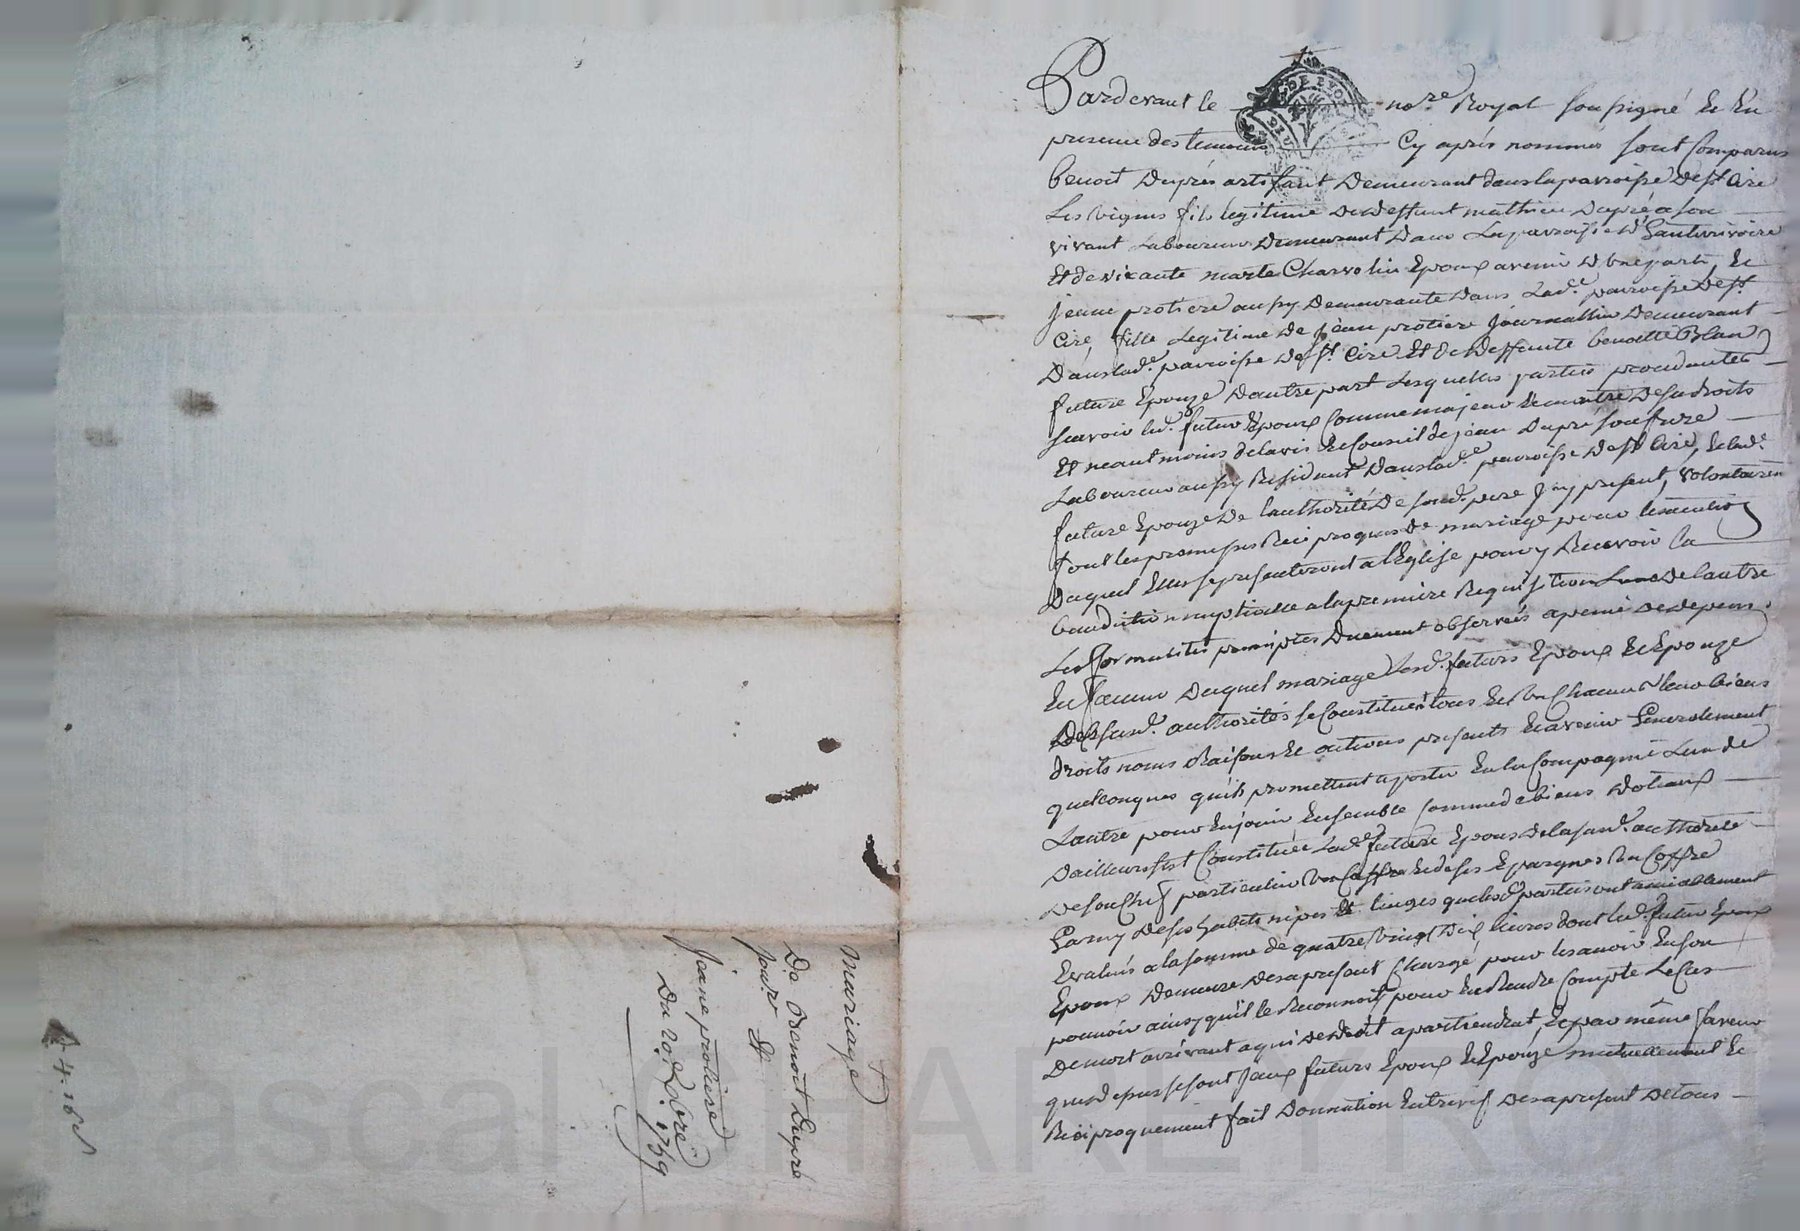 Pardevant le no.re Royal soussigné Et En
presence des temoins Cy aprés nommés sont Comparus
benoit Dupré artisant Demeurant dans la parroisse de st Cire
Les vignes fils legitime de deffunt mathieu Dupré a son
vivant Laboureur Demeurant Dans La parroisse
Et de vivante marte Charvolin Epoux avenir d'une part, Et
jeane protiere aussy Demeurante Dans Lad.e parroisse De st
Cire, fille Legitime De jean protiere journallier Demeurant
Dans lad.e parroisse De st Cire Et de Deffunte benoitte Blanc
future Epouze Dautre part Lesquelles parties procedantes
scavoir led. futur Epoux Comme majeur Et maitre De ses droits
Et neantmoins de lavis Et Conseil de jean Dupré son frere
Laboureur aussy Residant Dans lad.e parroisse De st Cire, Et lad.e
future Epouze De lauthorité De sond. pere Icy present, volontairem
font les promesses Reciproques de mariage pour
Duquel Elles se presenteront a lEglise pour y Recevoir la
benediction nuptialle a la premiere Requisition Lune De lautre
Les formalités Duement observées a peine De depens.
En faveur Duquel mariage Lesd. futurs Epoux Et Epouze
authorités se Constituent tous Et Un Chacun leur biens
droits noms Raisons Et actions presents Et avenir Generalement
quelconques quils promettent aporter En la Compagnie Lun de
Lautre pour En jouir Ensemble Comme de biens Dotaux
Dailleurs sest Constituée Lad.e future Epouze De la susd. authorité
De son Chef particulier Et de ses Epargnes Un Coffre
Garny De ses habits nipes Et linges que lesd. parties ont amiablement
Evalués a la somme de quatre vingt Dix livres dont led. futur Epoux
Epoux Demeure Des a present Chargé pour les avoir En son
pouvoir ainsy quil le Reconnoit pour En Rendre Compte Le Cas
De mort arrivant a qui De Droit apartiendrat, Et par même faveur
que dessus se sont Iceux futurs Epoux Et Epouze mutuellement Et
Reciproquement fait Donnation Entrevif Des a present De tous
Mariage
De Benoit Dupré
pour
Et
Jeane protiere
Du 20e 1769
Pascal CHAREYRON